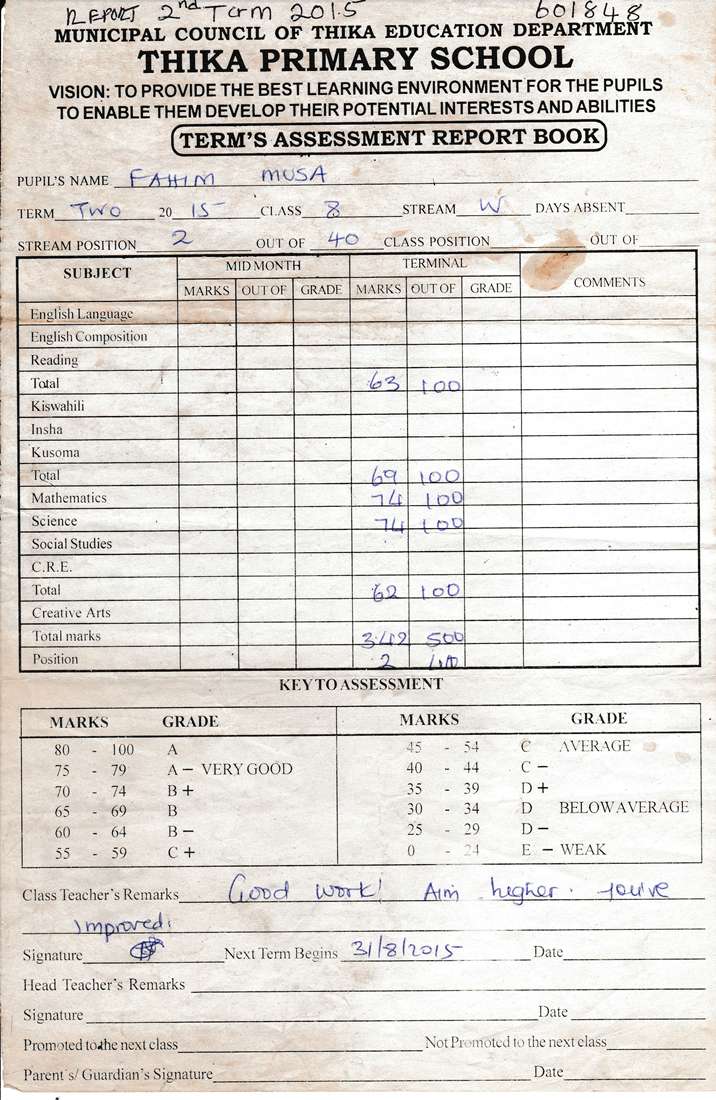 REPORT 2nd Term 2015 601848
MUNICIPAL COUNCIL OF THIKA EDUCATION DEPARTMENT
THIKA PRIMARY SCHOOL
VISION: TO PROVIDE THE BEST LEARNING ENVIRONMENT FOR THE PUPILS
TO ENABLE THEM DEVELOP THEIR POTENTIAL INTERESTS AND ABILITIES
TERM'S ASSESSMENT REPORT BOOK
PUPIL'S NAME FAHIM MUSA
TERM TWO 20 15 CLASS 8 STREAM W DAYS ABSENT
STREAM POSITION 2 OUT OF 40 CLASS POSITION OUT OF
SUBJECT MID MONTH TERMINAL COMMENTS
MARKS OUT OF GRADE MARKS OUT OF GRADE
English Language
English Composition
Reading
Total 63 100
Kiswahili
Insha
Kusoma
Total 69 100
Mathematics 74 100
Science 74 100
Social Studies
C.R.E.
Total 62 100
Creative Arts
Total marks 342 500
Position 2 40
KEY TO ASSESSMENT
MARKS GRADE MARKS GRADE
80 - 100 A 45 - 54 C AVERAGE
75 - 79 A - VERY GOOD 40 - 44 C -
70 - 74 B + 35 - 39 D +
65 - 69 B 30 - 34 D BELOW AVERAGE
60 - 64 B - 25 - 29 D -
55 - 59 C + 0 - 24 E - WEAK
Class Teacher's Remarks Good work! Aim higher. You've
improved.
Signature Next Term Begins 31/8/2015 Date
Head Teacher's Remarks
Signature Date
Promoted to the next class Not Promoted to the next class
Parent's/ Guardian's Signature Date